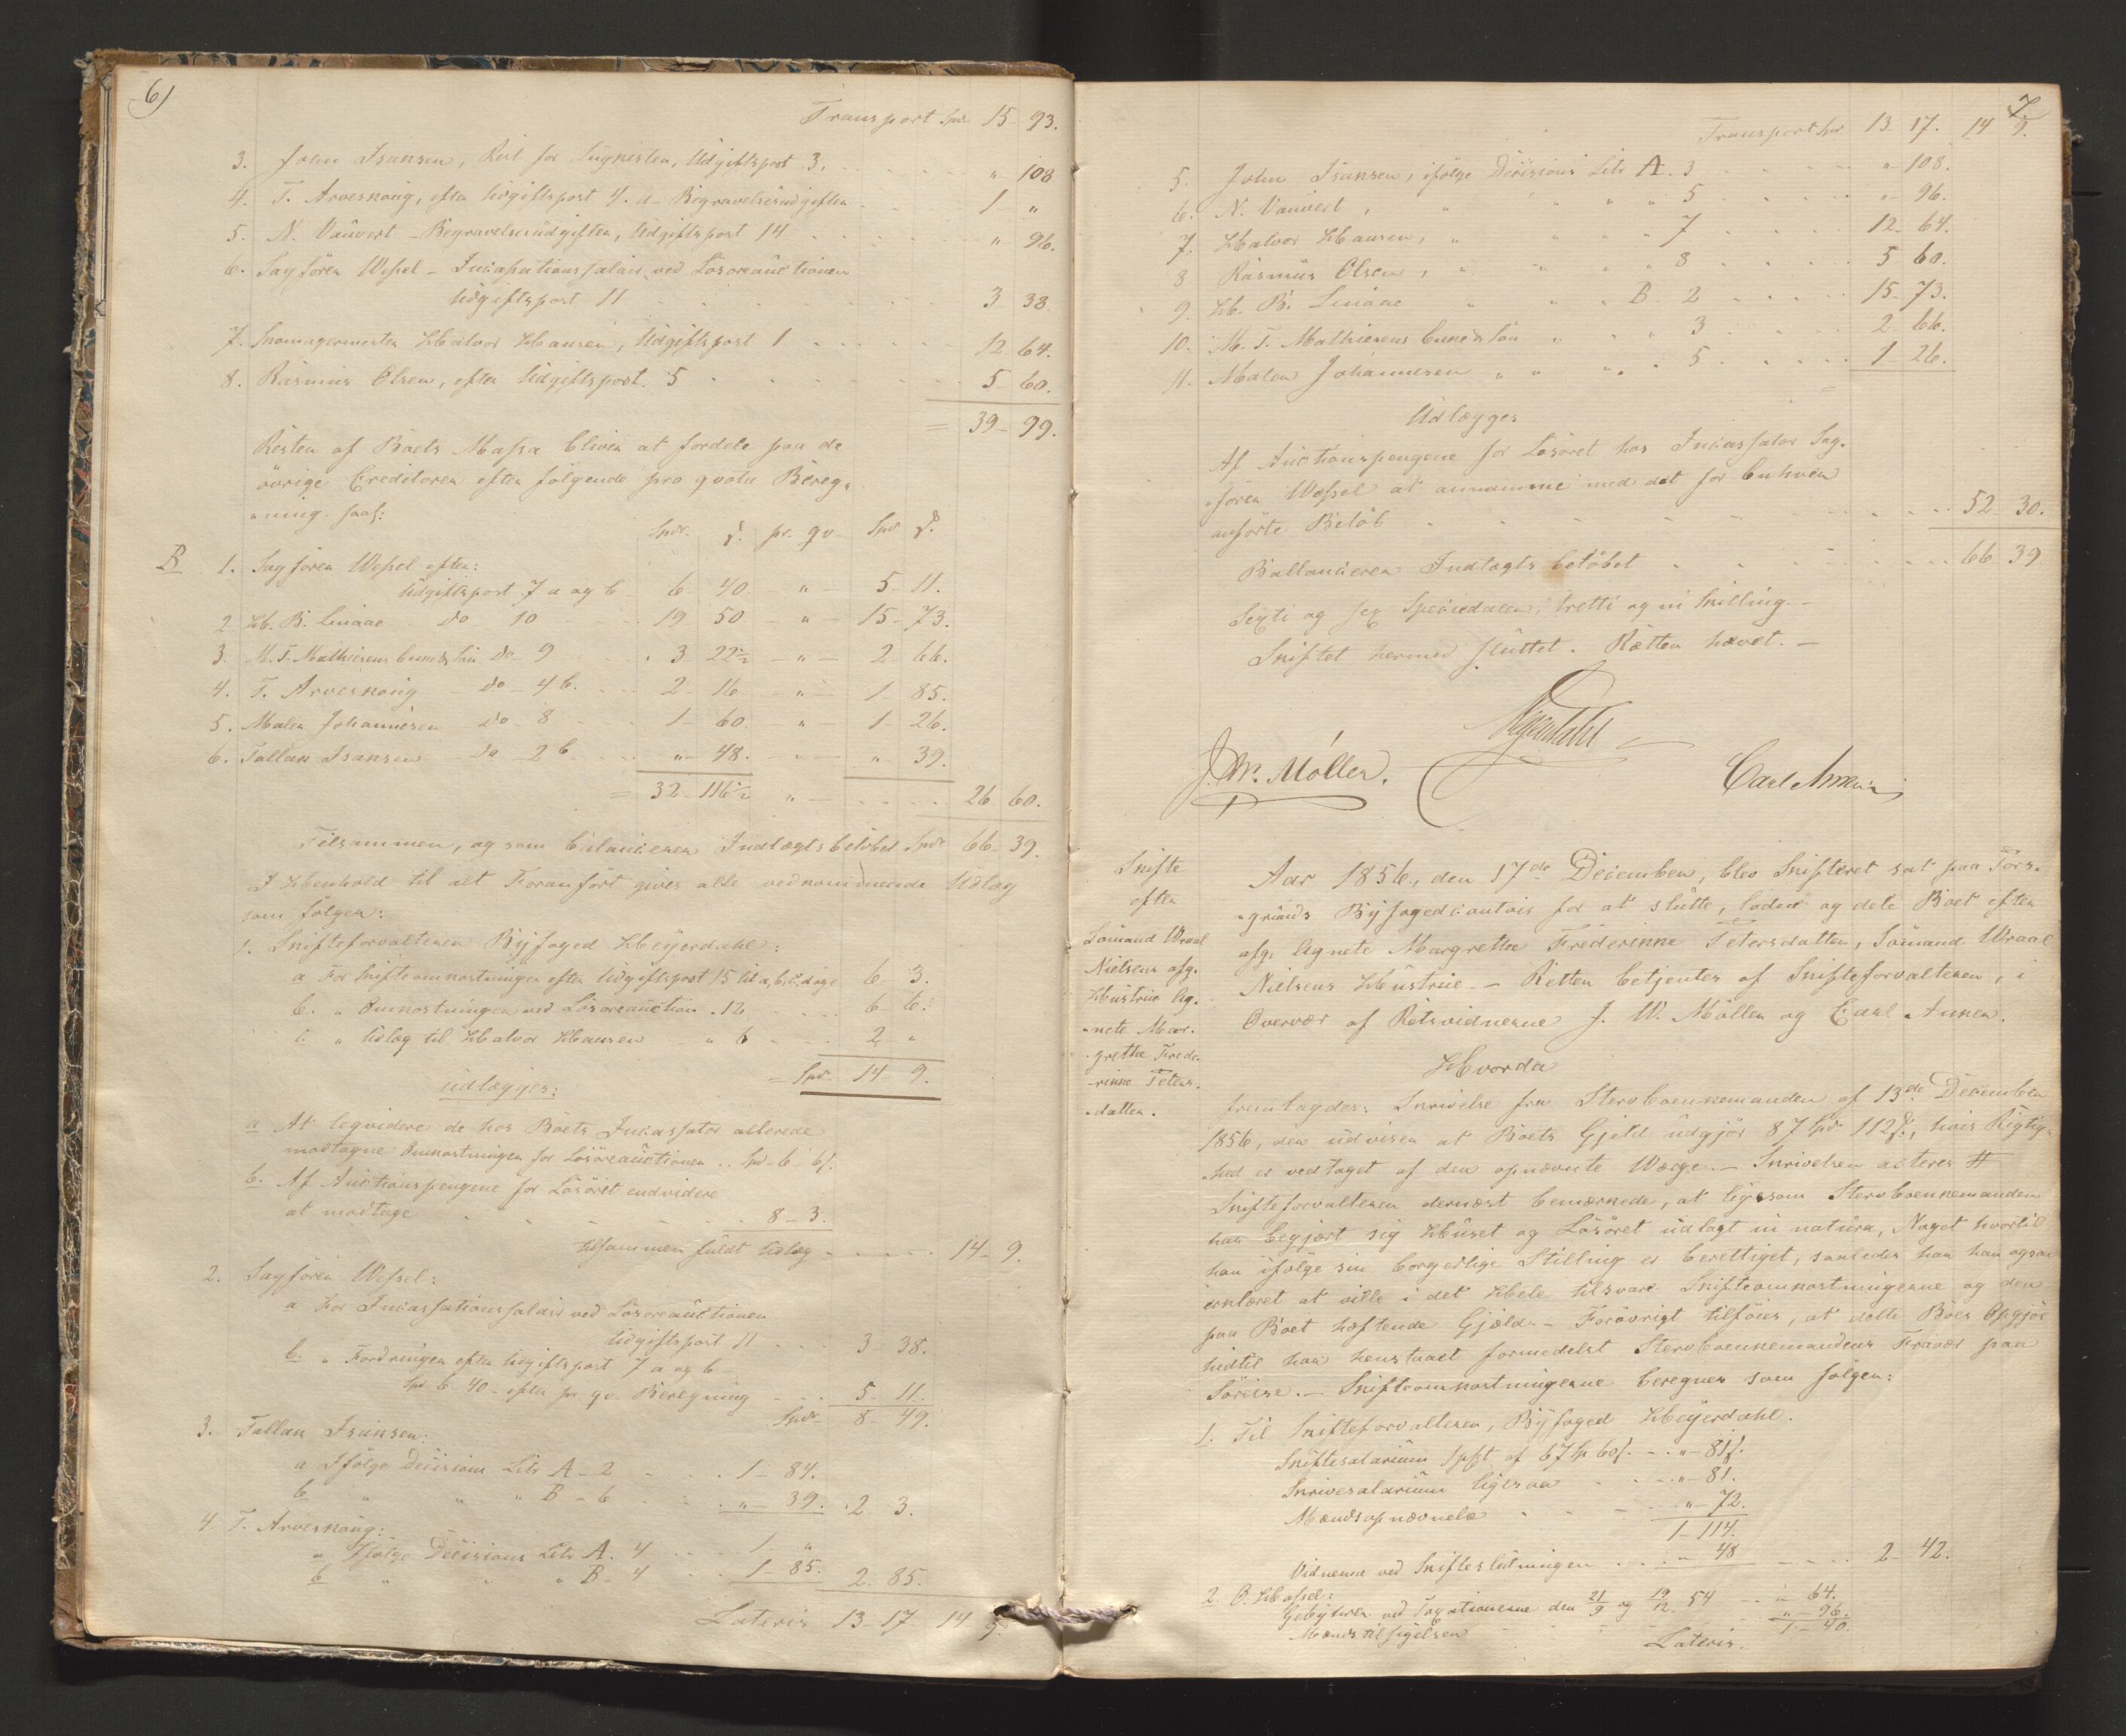 6)
Transport Spd. 15 - 93.
3. John Isaksen, Rest for Liigkisten, Udgiftspost 3, . . . . " 108
4. T. Arveskoug, efter Udgiftspost 4. a - Begravelsesudgifter . . 1 - "
5. N. Vauvert - Begravelsesudgifter, Udgiftspost 14 . . . . " 96.
6. Sagfører Wessel - Incassationssalair ved Løsøreauctionen
Udgiftspost 11 . . . . 3 38
7. Skomagermester Halvor Hansen, Udgiftspost 1 . . . . 12 - 64.
8. Rasmus Olsen, efter Udgiftspost 5 . . . . 5 - 60.
= 39 - 99.
Resten af Boets Massa bliver at fordele paa de
øvrige Creditorer efter følgende pro qvota Bereg-
"ning. saas:
Spdr. ß. pr. qv. Spd ß.
B 1. Sagfører Wessel efter:
Udgiftspost 7 a og b 6 - 40 - " - 5 - 11.
2. H. B. Liniaae - do - 10 . . 19 - 50 - " - 15 - 73.
3. M. T. Mathiesens Enke & Søn do - 9 . . 3 - 22½ - " - 2 - 66.
4. T. Arveskoug - do - 4 b. . . . 2 - 16 - " - 1 - 85.
5. Maler Johannesen - do - 8 . . . 1 - 60. " - 1 - 26.
6. Tallak Isaksen - do - 2 b . . . " - 48. - " - " 39.
= 32 - 116½ " - . . . . 26 60.
Tilsammen, og som bilancerer Indtægtsbeløbet Spd 66 - 39.
I Henhold til alt Foranført gives alle vedkommende Udlæg
som følger:
1. Skifteforvalteren Byfoged Heÿerdahl:
a For Skifteomkostninger efter Udgiftspost 15 Lit a, b, c, d og e 6 - 3.
b. " Omkostninger ved Løsøreauction . 12, . . . . 6 - 6.
c. " Udlæg til Halvor Hansen " 6 . . . 2 - "
= Spd. 14 - 9.
udlægges:
a At leqvidere de hos Boets Incassator allerede
modtagne Omkostninger for Løsøreauctionen . . Spd. 6 - 6ß.
b. Af Auctionspengene for Løsøret endvidere
at modtage . . . . 8 - 3.
tilsammen fuldt Udlæg . . . . 14 - 9.
2. Sagfører Wessel:
a For Incassationssalair ved Løsøreauctionen
Udgiftspost 11 . . . 3 - 38.
b. " Fordringer efter Udgiftspost 7 a og b
Spd 6 - 40 - efter pr. qv. Beregning . . . 5 - 11.
Spdr. 8 - 49.
3. Tallak Isaksen:
a Ifølge Decisions Litr A - 2 . . . . 1 - 84.
b " " " B - 6 . . . " - 39. . 2 - 3.
4 T. Arveskoug:
a Ifølge Decisions Litr A. 4 . . . 1 - "
b " " " B - 4 . . 1 - 85. 2 - 85.
Lateris 13 - 17 - 14 9.
7.
Transport Spd 13 - 17. 14 9.
5. John Isaksen, ifølge Decisions Litr A. 3 . . . . " - 108.
6. N. Vauvert, " " " " 5 . . . . " - 96.
7. Halvor Hansen, " " " " 7 . . . . 12 - 64.
8. Rasmus Olsen, " " " " 8 . . . . 5 60.
9. H. B. Liniaae " " " B 2 . . . . 15 - 73.
10. M. T. Mathiesens Enke & Søn " " " 3 . . . . 2 - 66.
11. Maler Johannesen " " " " 5 . . . . 1 - 26.
Udlægges
Af Auctionspengene for Løsøret hos Incassator Sag-
"fører Wessel at annamme med det for Enhver
anførte Beløb . . . . 52 - 30.
Ballancerer Indtægtsbeløbet . . . . 66 39
Sexti og sex Speciedaler, tretti og ni Skilling. -
Skiftet hermed sluttet. Rætten hævet. -
Heyerdahl
J. W. Møller.
Carl Anker
Skifte
efter
Sømand Wraal
Nielsens afg.
Hustrue Ag-
"nete Mar-
"grethe Frede-
"rikke Peters-
"datter.
Aar 1856, den 17de December, blev Skifteret sat paa Tors-
"grunds Byfogedcontoir for at slutte, lodne og dele Boet efter
afg. Agnete Margrethe Frederikke Petersdatter, Sømand Wraal
Nielsens Hustrue. - Retten betjentes af Skifteforvalteren, i
Overvær af Retsvidnerne J. W. Møller og Carl Anker.
Hvorda
fremlagdes: Skrivelse fra Stervboenkemanden af 13de December
1856, der udviser at Boets Gjeld udgjør 87 Spd 112ß., hvis Rigtig-
"hed er vedtaget af den opnævnte Værge. - Skrivelsen acteres #
Skifteforvalteren dernæst bemærkede, at ligesom Stervboenkemanden
har begjært sig Huset og Løsøret udlagt in natura, Noget hvortil
han ifølge sin borgerlige Stilling er berettiget, saaledes har han ogsaa
erklæret at ville i det Hele tilsvare Skifteomkostningerne og den
paa Boet heftende Gjæld. - Forøvrigt tilføies, at dette Boes Opgjør
hidtil har henstaaet formedelst Stervboenkemandens Fravær paa
Søreise. - Skifteomkostningerne beregnes som følger:
1. Til Skifteforvalteren, Byfoged Heyerdahl.
Skiftesalarium 1 pct af 67 Sp 60ß. . . " - 81ß.
Skrivesalarium ligesaa . . . . " - 81.
Mændsopnævnelse . . . . " - 72.
1 - 114.
Vidnerne ved Skifteslutningen . . . " - 48 . . . . 2 - 42.
2. O. Hassel:
Gebyhrer ved Taxationerne den 21/9 og 19/12 54 . . " 64.
Mænds tilsigelsen . . . . " - 96.
1 - 40.
Lateris.